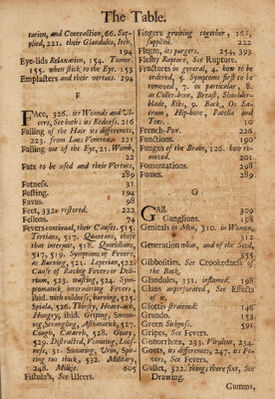 The Table.
tarion, and Contraction, 66. Sup-
plied, 221. their Glandules, Itch,
194
Eye-lids Relaxation, 154. Tumor
155. when stick to the Eye. 153
Emplasters and their vertues. 294
F
FAce, 326. its Wounds and Ul-
cers, See both: its Redness. 216
Falling of the Hair its differences,
223. from Lues Venerea 221
Falling out of the Eye, 21. Womb,
22
Fats to be used and their Vertues,
289
Fatness. 31
Fasting. 194
Favus. 98
Feet, 332. restored. 222
Fellons. 74
Fevers continued, their Causes, 515.
Tertians, 517. Quartans, those
that intermit, 518. Quotidians,
517, 519. Symptoms of Fevers,
as Burning, 521. Leiperian, 522.
Cause of Raving Fevers or Deli-
rium, 523. wasting, 524. Sym-
ptomatick, intermitting Fevers
ibid. with coldness, burning, 525.
Epiala, 526. Thirsty, Heart-ach,
Hungry, ibid. Griping, Swoon-
ing, Strangling, Asthmatick, 527.
Cough, Catarrh, 528. Gouty,
529. Distracted, Vomiting, Loose-
ness, 31. Sweating, Urin, Spit-
ting too thick, 532. Military,
248. 605
Fistula's, See Ulcers.
Fingers growing together, 161,
222
Flegm, its purgers. 254, 393
Fleshy Rupture, See Rupture.
Fractures in general, 4. how to be
ordered, 5. Symptoms first to be
removed, 7. in particular, 8.
as Coller-bone, Breast, Shoulder-
blade, Ribs, 9. Back, Os Sa-
crum, Hip-bone, Patella and
Toes. 10
French-Pox. 226
Functions. 190
Fungus of the Brain, 126. how re-
moved. 201
Fomentations. 298
Fumes. 289
G
GAll. 309
Ganglions. 108
Genitals in Men, 310. in Women,
312
Generation what, and of the Seed,
355
Gibbosities. See Crookedness of
the Back.
Glandules, 331. inflamed. 198
Glans imperforated, See Effects
of it.
Glottis straitned. 146
Grando. 153
Green Sickness. 591
Gripes, See Fevers.
Gonorrhœa, 233. Virulent, 234.
Gouts, its differences, 247. its Fe-
vers, See Fevers.
Gullet, 322. things there fixt, See
Drawing.
Gumms,